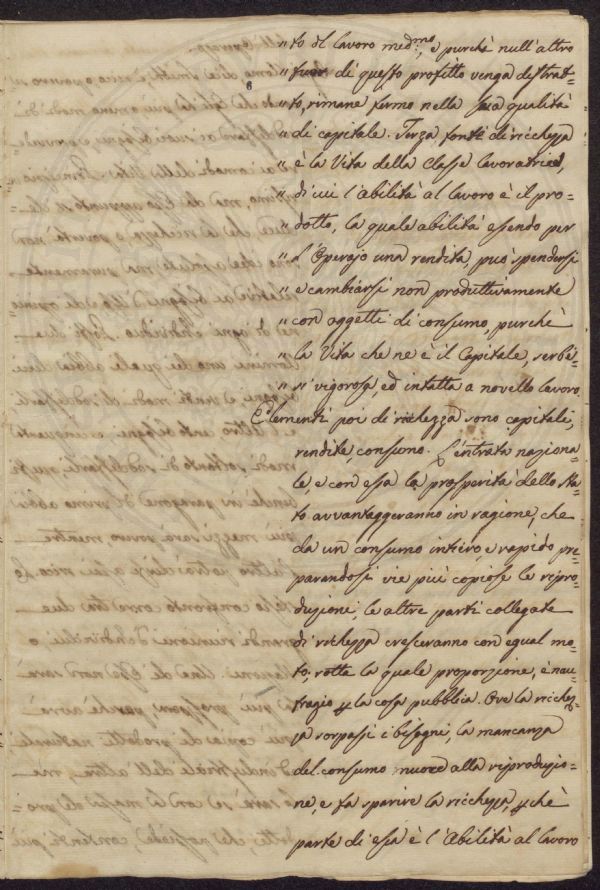 6
"to del lavoro med.mo, e purchè null'altro
"fuor di questo profitto venga distrat=
"to, rimane fermo nella sua qualità
"di capitale. Terza fonte di ricchezza
"è la Vita della Classe lavoratrice,
"di cui l'abilità al lavoro è il pro=
"dotto, la quale abilità essendo per
"l'Operajo una rendita, può spendersi
"e cambiarsi non produttivamente
"con oggetti di consumo, purchè
"la Vita che ne è il Capitale, serbi=
"si vigorosa, ed intatta a novello lavoro.
Elementi poi di richezza sono capitali,
rendite, consumo. L'entrata naziona=
le, e con essa la prosperità dello Sta=
to avvantaggeranno in ragione, che
da un consumo intiero, e rapido pre=
parandosi vie più copiose le ripro=
duzioni, le altre parti collegate
di richezza cresceranno con egual mo=
to: rotta la quale proporzione, è nau=
fragio per la cosa pubblica. Ove la ricchez=
za sorpassi i bisogni, la mancanza
del consumo nuoce alla riproduzio=
ne, e fa sparire la ricchezza, perchè
parte di essa è l'Abilità al lavoro